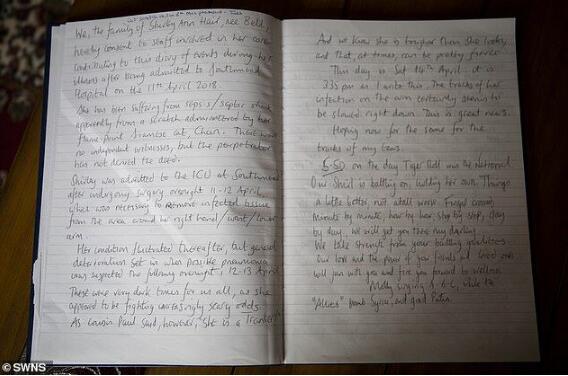 We, the family of Shirley Ann Hair, nee Bell,
hereby consent to staff involved in her care
contributing to this diary of events during her
illness after being admitted to Southmead
Hospital on the 11th April 2018.
She has been suffering from sepsis/septic shock
apparently from a scratch administered by her
flame point Siamese cat, Chan. There were
no independent witnesses, but the perpetrator
has not denied the deed.
Shirley was admitted to the ICU at Southmead
after undergoing surgery overnight 11-12 April,
which was necessary to remove infected tissue
from the area around her right hand/wrist/lower
arm.
Her condition fluctuated thereafter, but general
deterioration set in when possible pneumonia
was suspected the following overnight 12-13 April
These were very dark times for us all, as she
appeared to be fighting increasingly scary odds.
As cousin Paul said, however, she is a
And we know she is tougher than she looks,
and that, at times, can be pretty fierce
This day is Sat 14th April. it is
3.35 pm as I write this. The tracks of her
infection on the arm certainly seems to
be slowed right down. This is great news.
Hoping now for the same for the
tracks of my tears.
5.50 on the day Tiger Roll won the National
Our Shirl is battling on, holding her own. Things
a little better, not all worse. Fingers crossed
Minute by minute, hour by hour, step by step, day
by day, we will get you there my darling.
We take strength from your battling qualities
Our love and the power of your friends and loved ones
will join with you and fire you forward to wellness
Molly singing while the
"Allies" bomb Syria, and goad Putin.
SWNS